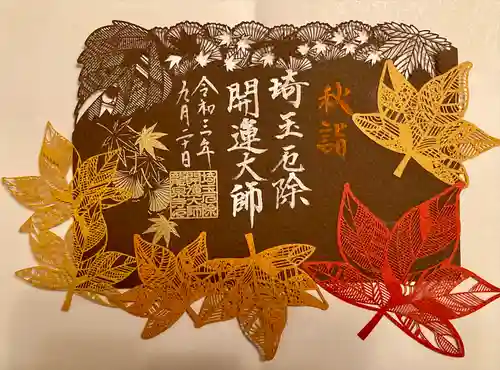 秋詣
埼玉厄除
開運大師
令和三年
九月二十日